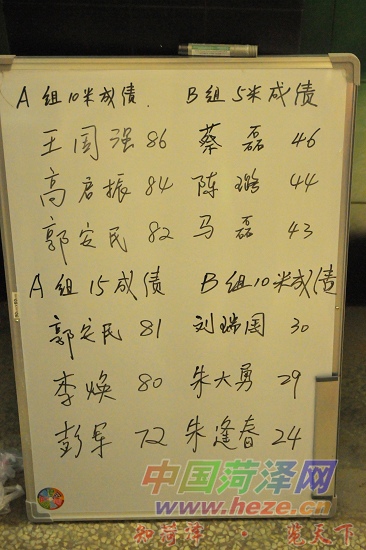 A组10米成债. B组5米成债
王周强 86 蔡磊 46
高启振 84 陈璐 44
郭安民 82 马磊 43
A组15成债 B组10米成债
郭安民 81 刘瑞国 30
李焕 80 朱大勇 29
彭军 72 朱逢春 24
中国菏泽网
www.heze.cn
知菏泽·览天下